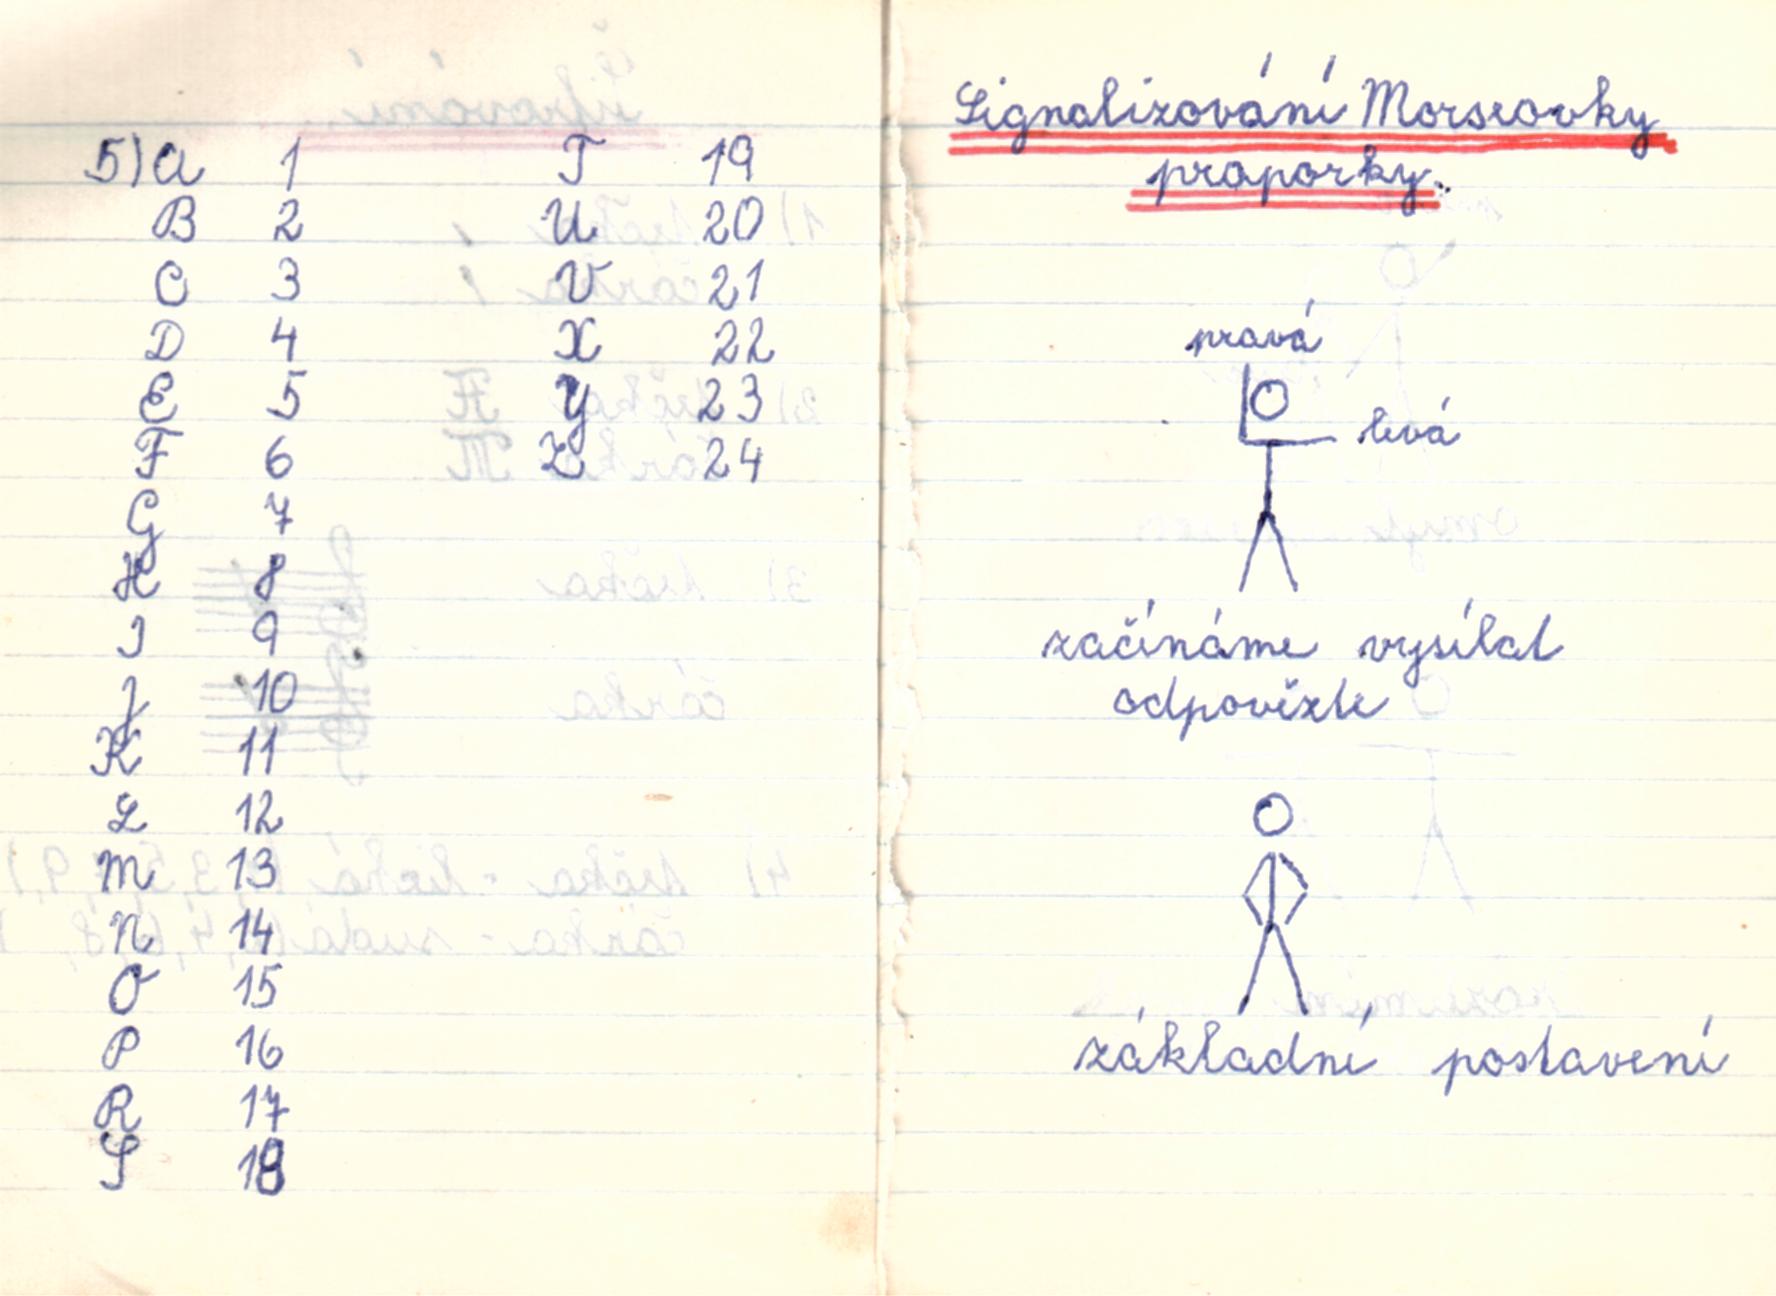 5) A 1
B 2
C 3
D 4
E 5
F 6
G 7
H 8
I 9
J 10
K 11
L 12
M 13
N 14
O 15
P 16
R 17
S 18
T 19
U 20
V 21
X 22
Y 23
Z 24
Signalizování Morseovky
praporky.
pravá
levá
začínáme vysílat
odpovězte
základní postavení